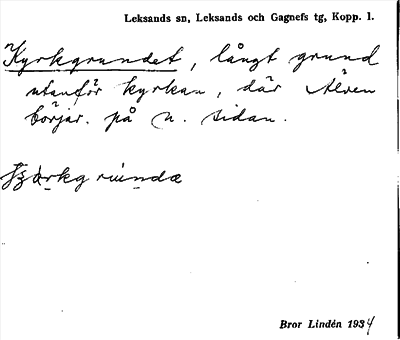 Leksands sn, Leksands och Gagnefs tg, Kopp. l.
Kyrkgrundet, långt grund
utanför kyrkan, där Älven
börjar. på n. sidan.
Bror Lindén 1934